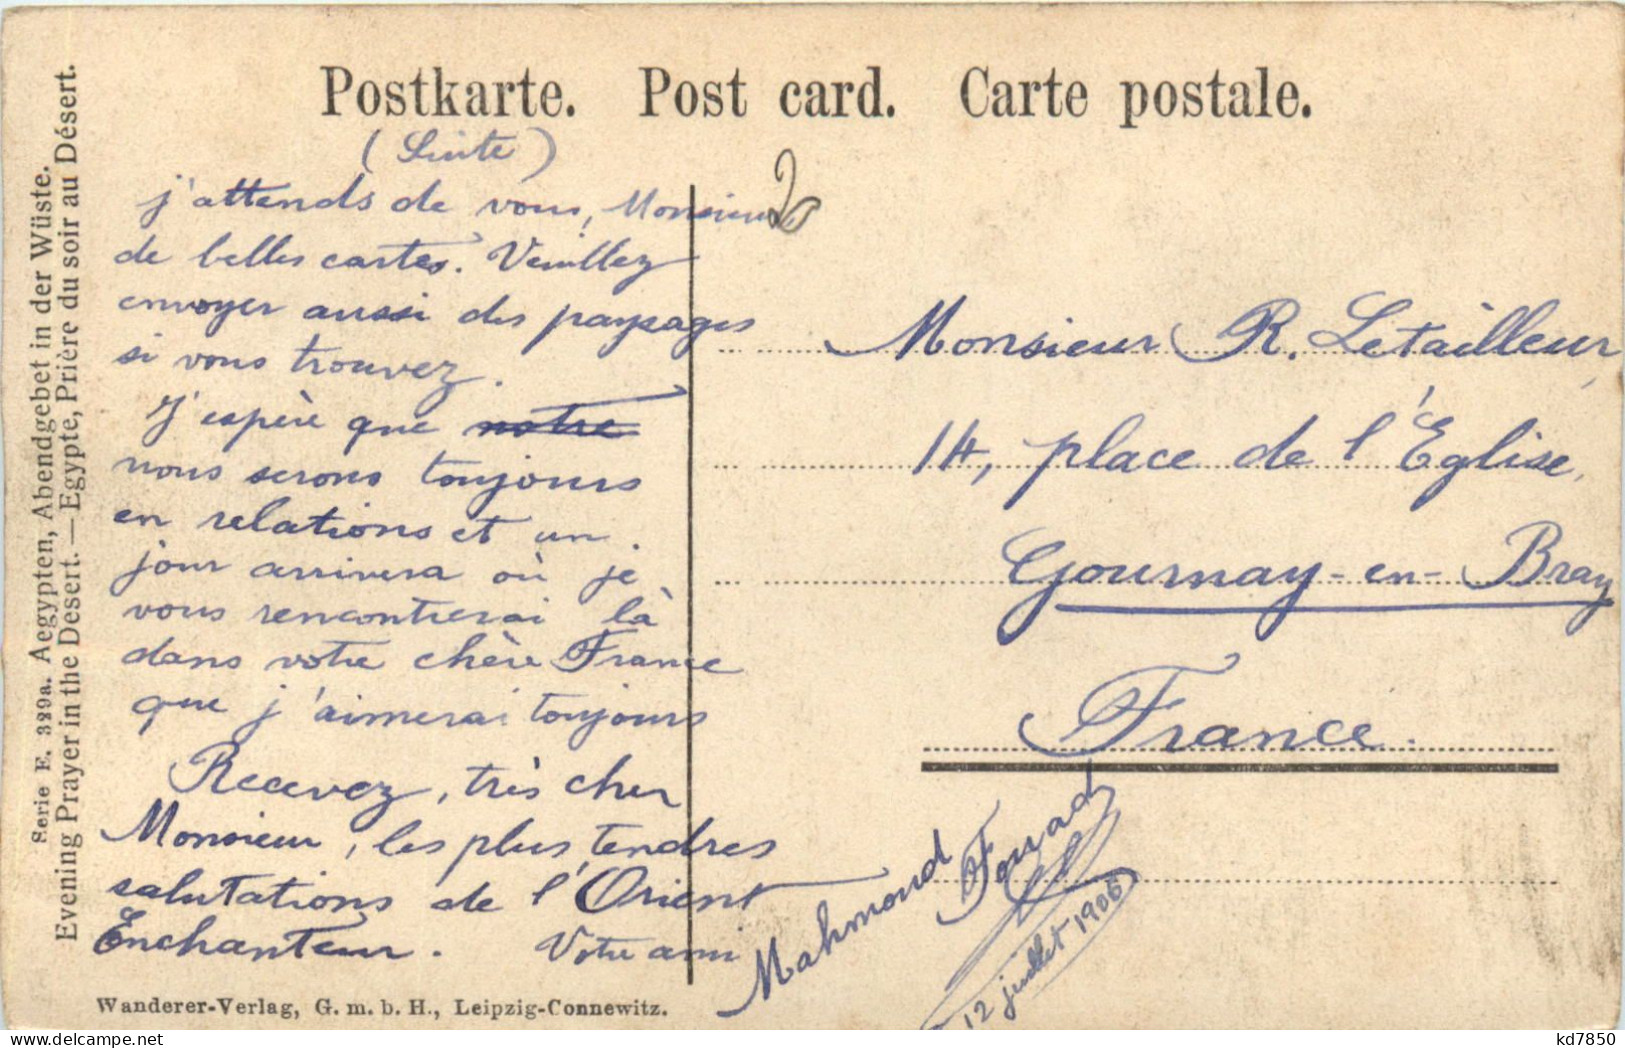 Postkarte. Post card. Carte postale.
Serie E. 329a. Aegypten, Abendgebet in der Wüste.
Evening Prayer in the Desert. — Egypte, Prière du soir au Désert.
(Suite)
j'attends de vous, Monsieur
de belles cartes. Veuillez
envoyer aussi des paysages
si vous trouvez.
J'espère que notre
nous serons toujours
en relations et un
jour arrivera où je
vous rencontrerai là
dans votre chère France
que j'aimerai toujours
Recevez, très cher
Monsieur, les plus tendres
salutations de l'Orient
Enchanteur. Votre ami
Mahmoud Fouad
12 juillet 1906
Monsieur R. Letailleur,
14, place de l'Église,
Gournay-en-Bray
France.
Wanderer-Verlag, G. m. b. H., Leipzig-Connewitz.
kd7850